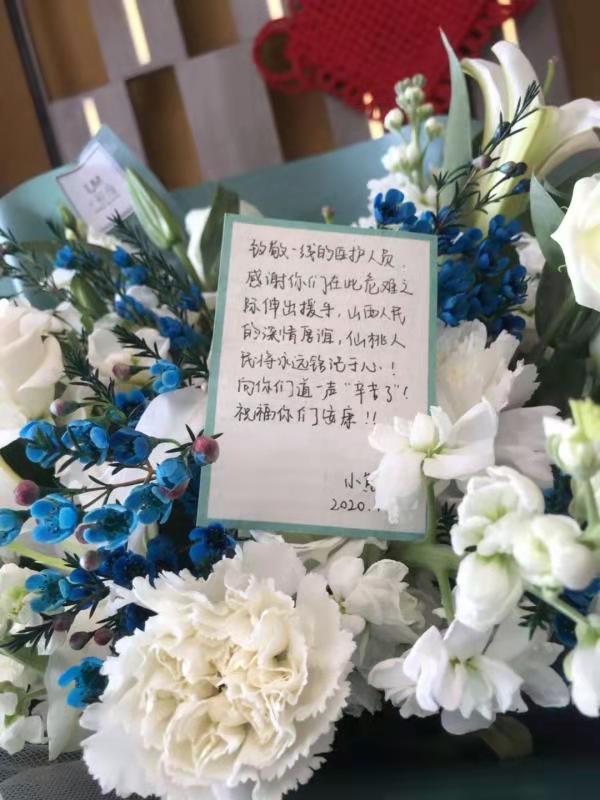 LM
致敬一线的医护人员:
感谢你们在此危难之
际伸出援手,山西人民
的深情厚谊,仙桃人
民将永远铭记于心!
向你们道一声“辛苦了”!
祝福你们安康!!
小
2020.